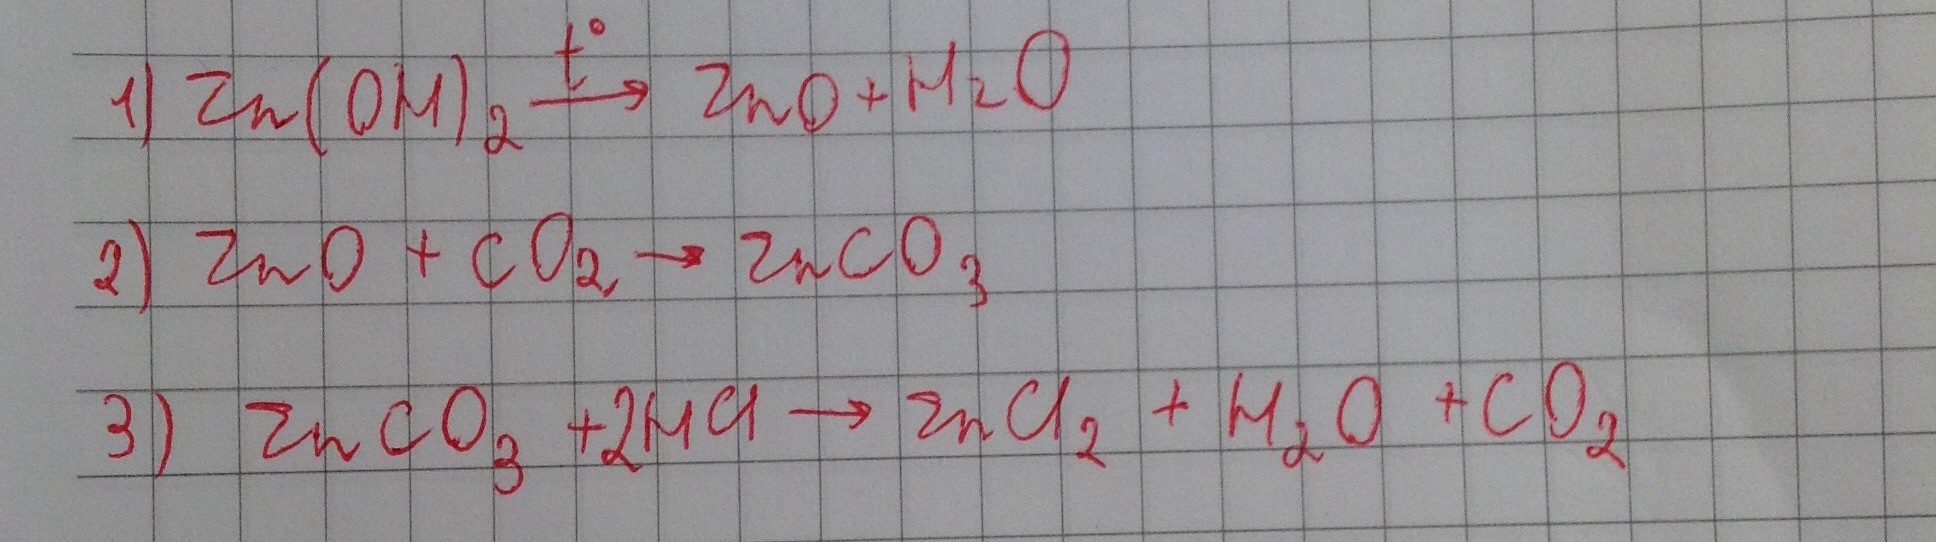 1) Zn(OH)₂ —t°→ ZnO + H₂O
2) ZnO + CO₂ → ZnCO₃
3) ZnCO₃ + 2HCl → ZnCl₂ + H₂O + CO₂